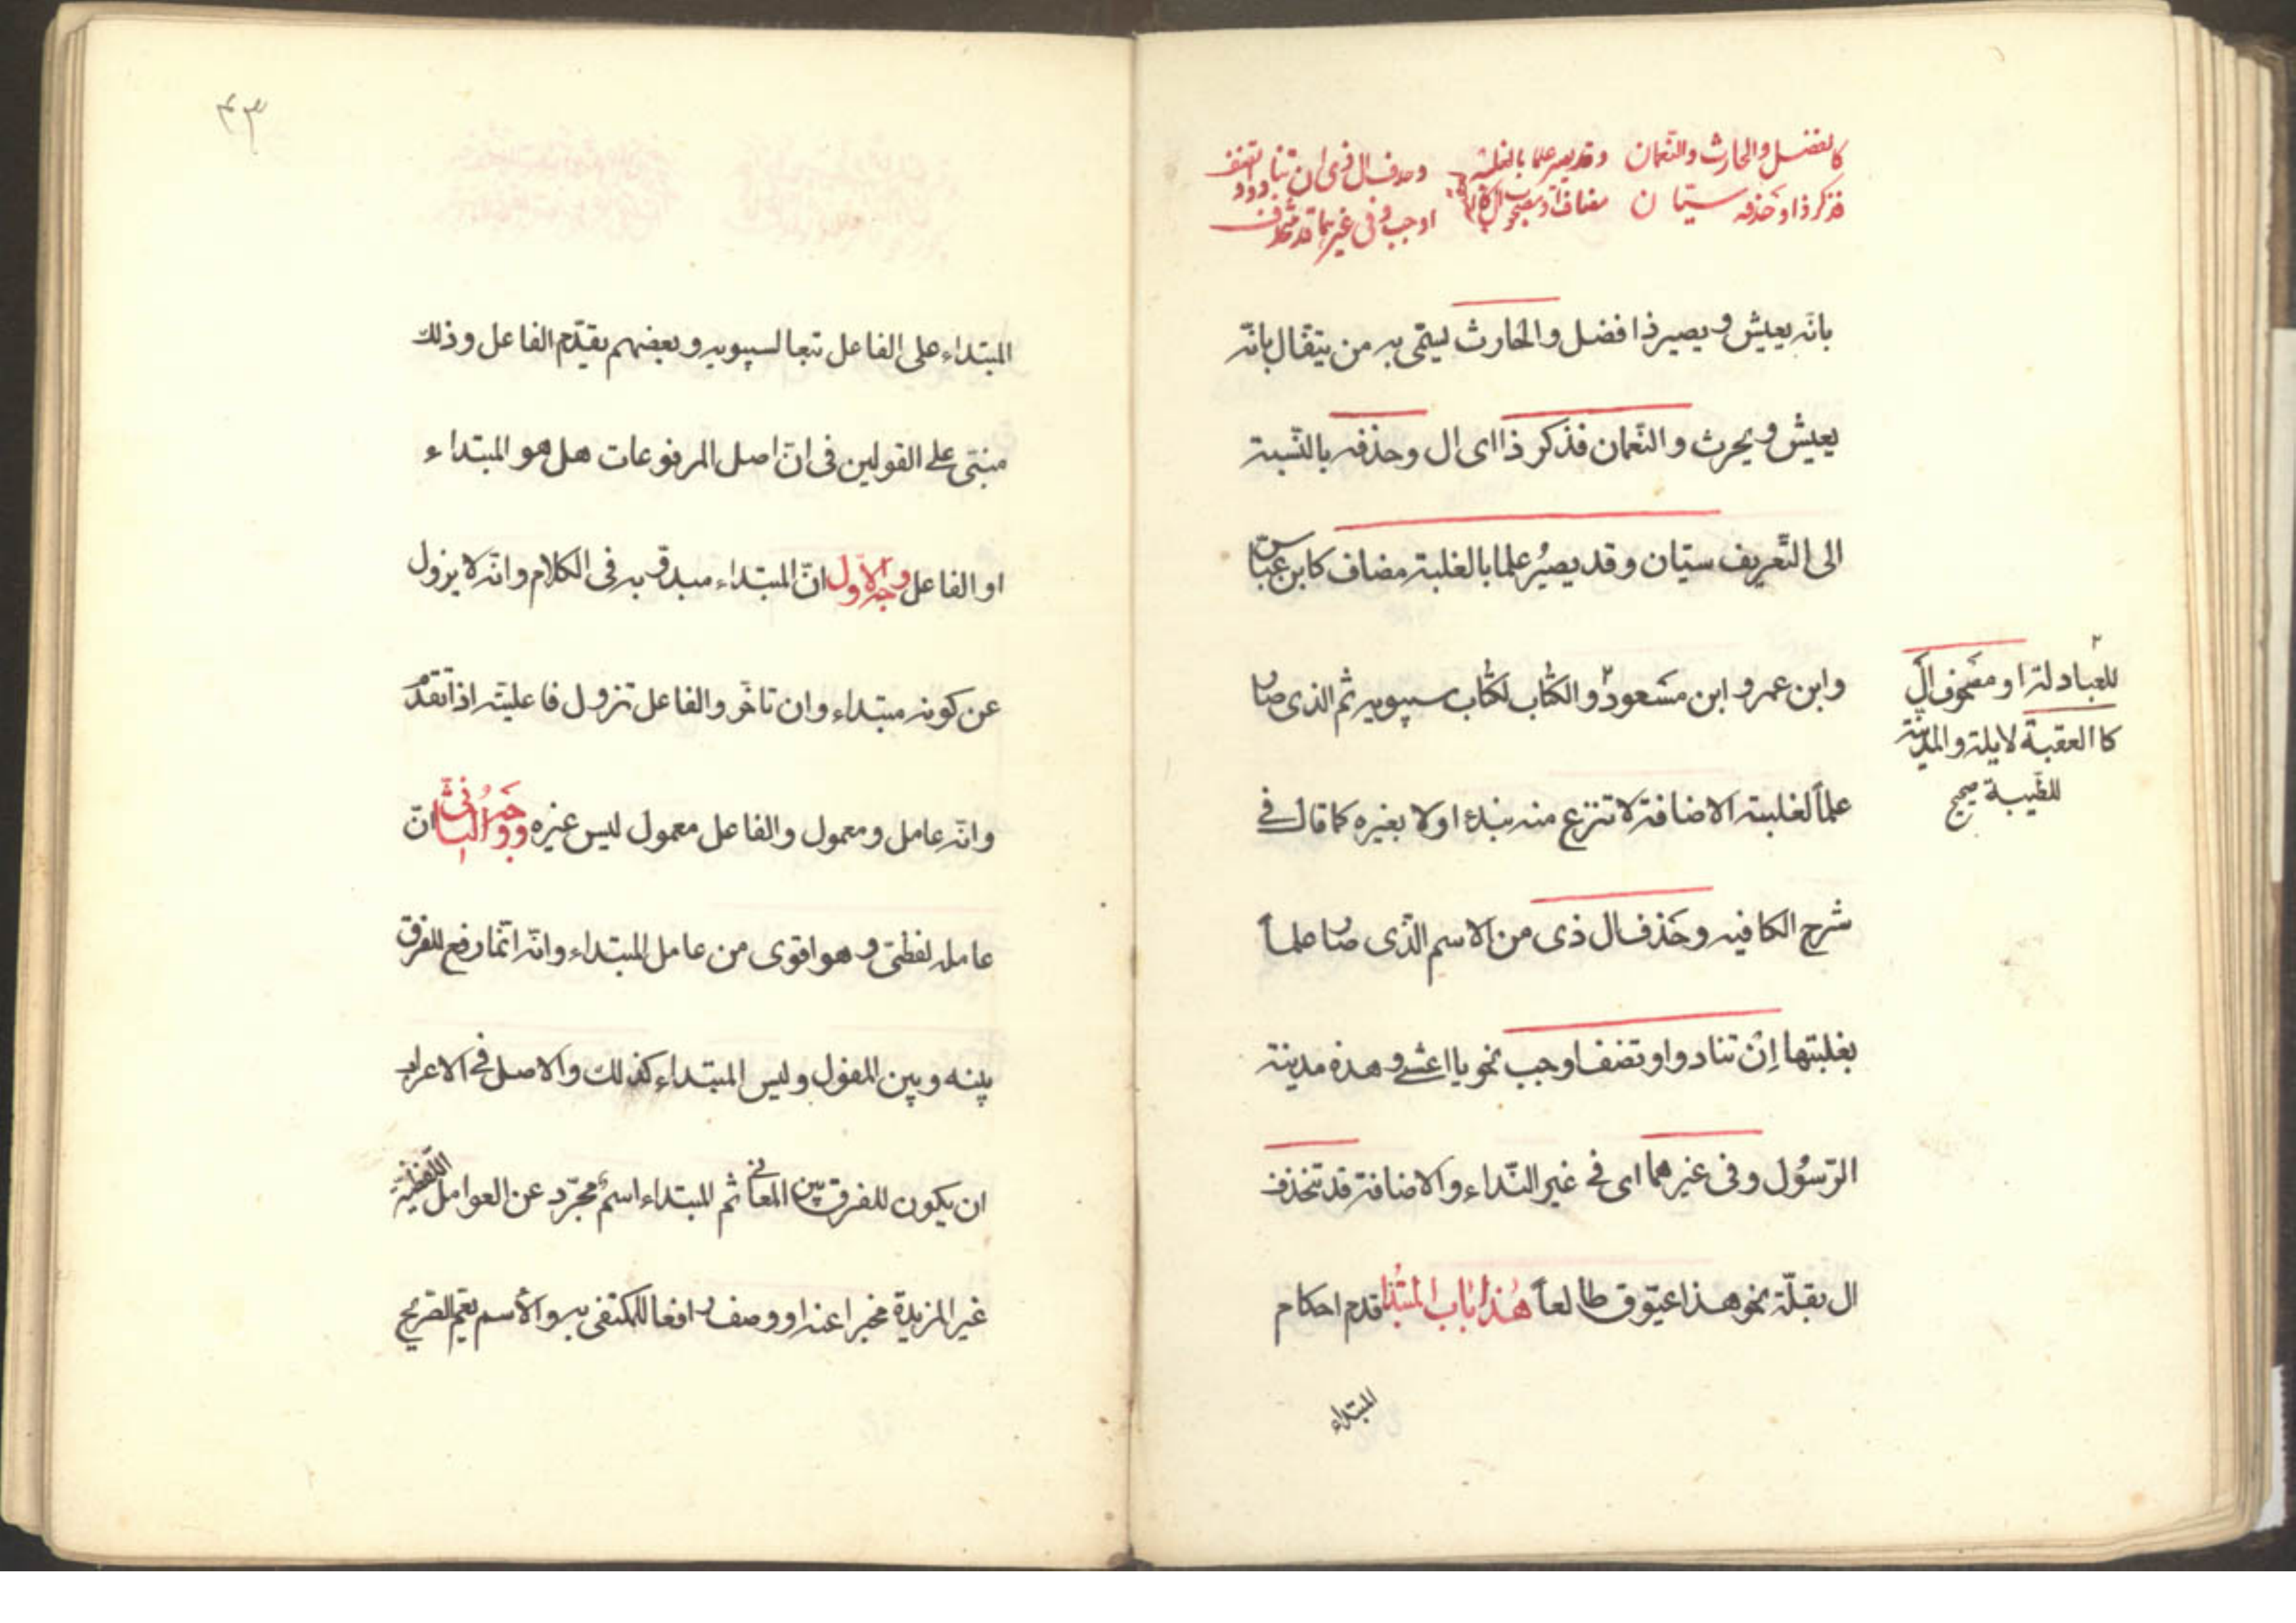 كالفضل والحارث والنعمان
فذكر ذا وحذفه سيّان
وقد يصير علما بالغلبة
مضاف او مصحوب ال كالعقبة
وحذف ال ذى ان تناد او تضف
اوجب وفى غيرهما قد تنحذف
بانّه يعيش و يصير ذا فضل والحارث يسمّى به من يتفّال بانّه
يعيش و يحرث والنّعمان فذكر ذا اى ال وحذفه بالنّسبة
الى التّعريف سيّان وقد يصيرُ علما بالغلبة مضاف كابن عبّاس
وابن عمرو ابن مسعود ٢ والكتاب لكتاب سيبويه ثم الذى صار
للعبادلة او مصحوف ال
كا العقبة لايلة والمدينة
للطّيبة صحح
علماً لغلبته الاضافة لا تنزع منه بنداء ولا بغيره كما قال فى
شرح الكافيه وحَذف ال ذى من الاسم الّذى صار علماً
بغلبتها اِن تناد و او تضف اوجب نحو يا اعشى وهذه مدينة
الرّسُول وفى غيرهما اى فى غير النّداء والاضافة قد تنحذف
ال بقلّة نحو هذا عيّوق طالعاً هٰذا باب المبتدا قدم احكام
المبتداء
٤٣
المبتداء على الفاعل تبعا لسيبويه و بعضهم يقدّم الفاعل وذلك
مبنىّ على القولين فى انّ اصل المرفوعات هل هو المبتداء
او الفاعل وجه الاوّل انّ المبتداء مبدوّ به فى الكلام وانّه لا يزول
عن كونه مبتداء وان تاخّر والفاعل تزول فاعليته اذا تقدّم
وانّه عامل و معمول والفاعل معمول ليس غيره و وجه الثّانى انّ
عامله لفظىّ و هو اقوى من عامل المبتداء وانّه انّما رفع للفرق
بينه و بين المفعول وليس المبتداء كذلك والاصل فى الاعراب
ان يكون للفرق بين المعانى ثم المبتداء اسمٌ مجرّد عن العوامل اللّفظيّة
غير المزيدة مخبرا عنه او وصف رافعا لمكتفى به والاسم يعمّ الصّريح